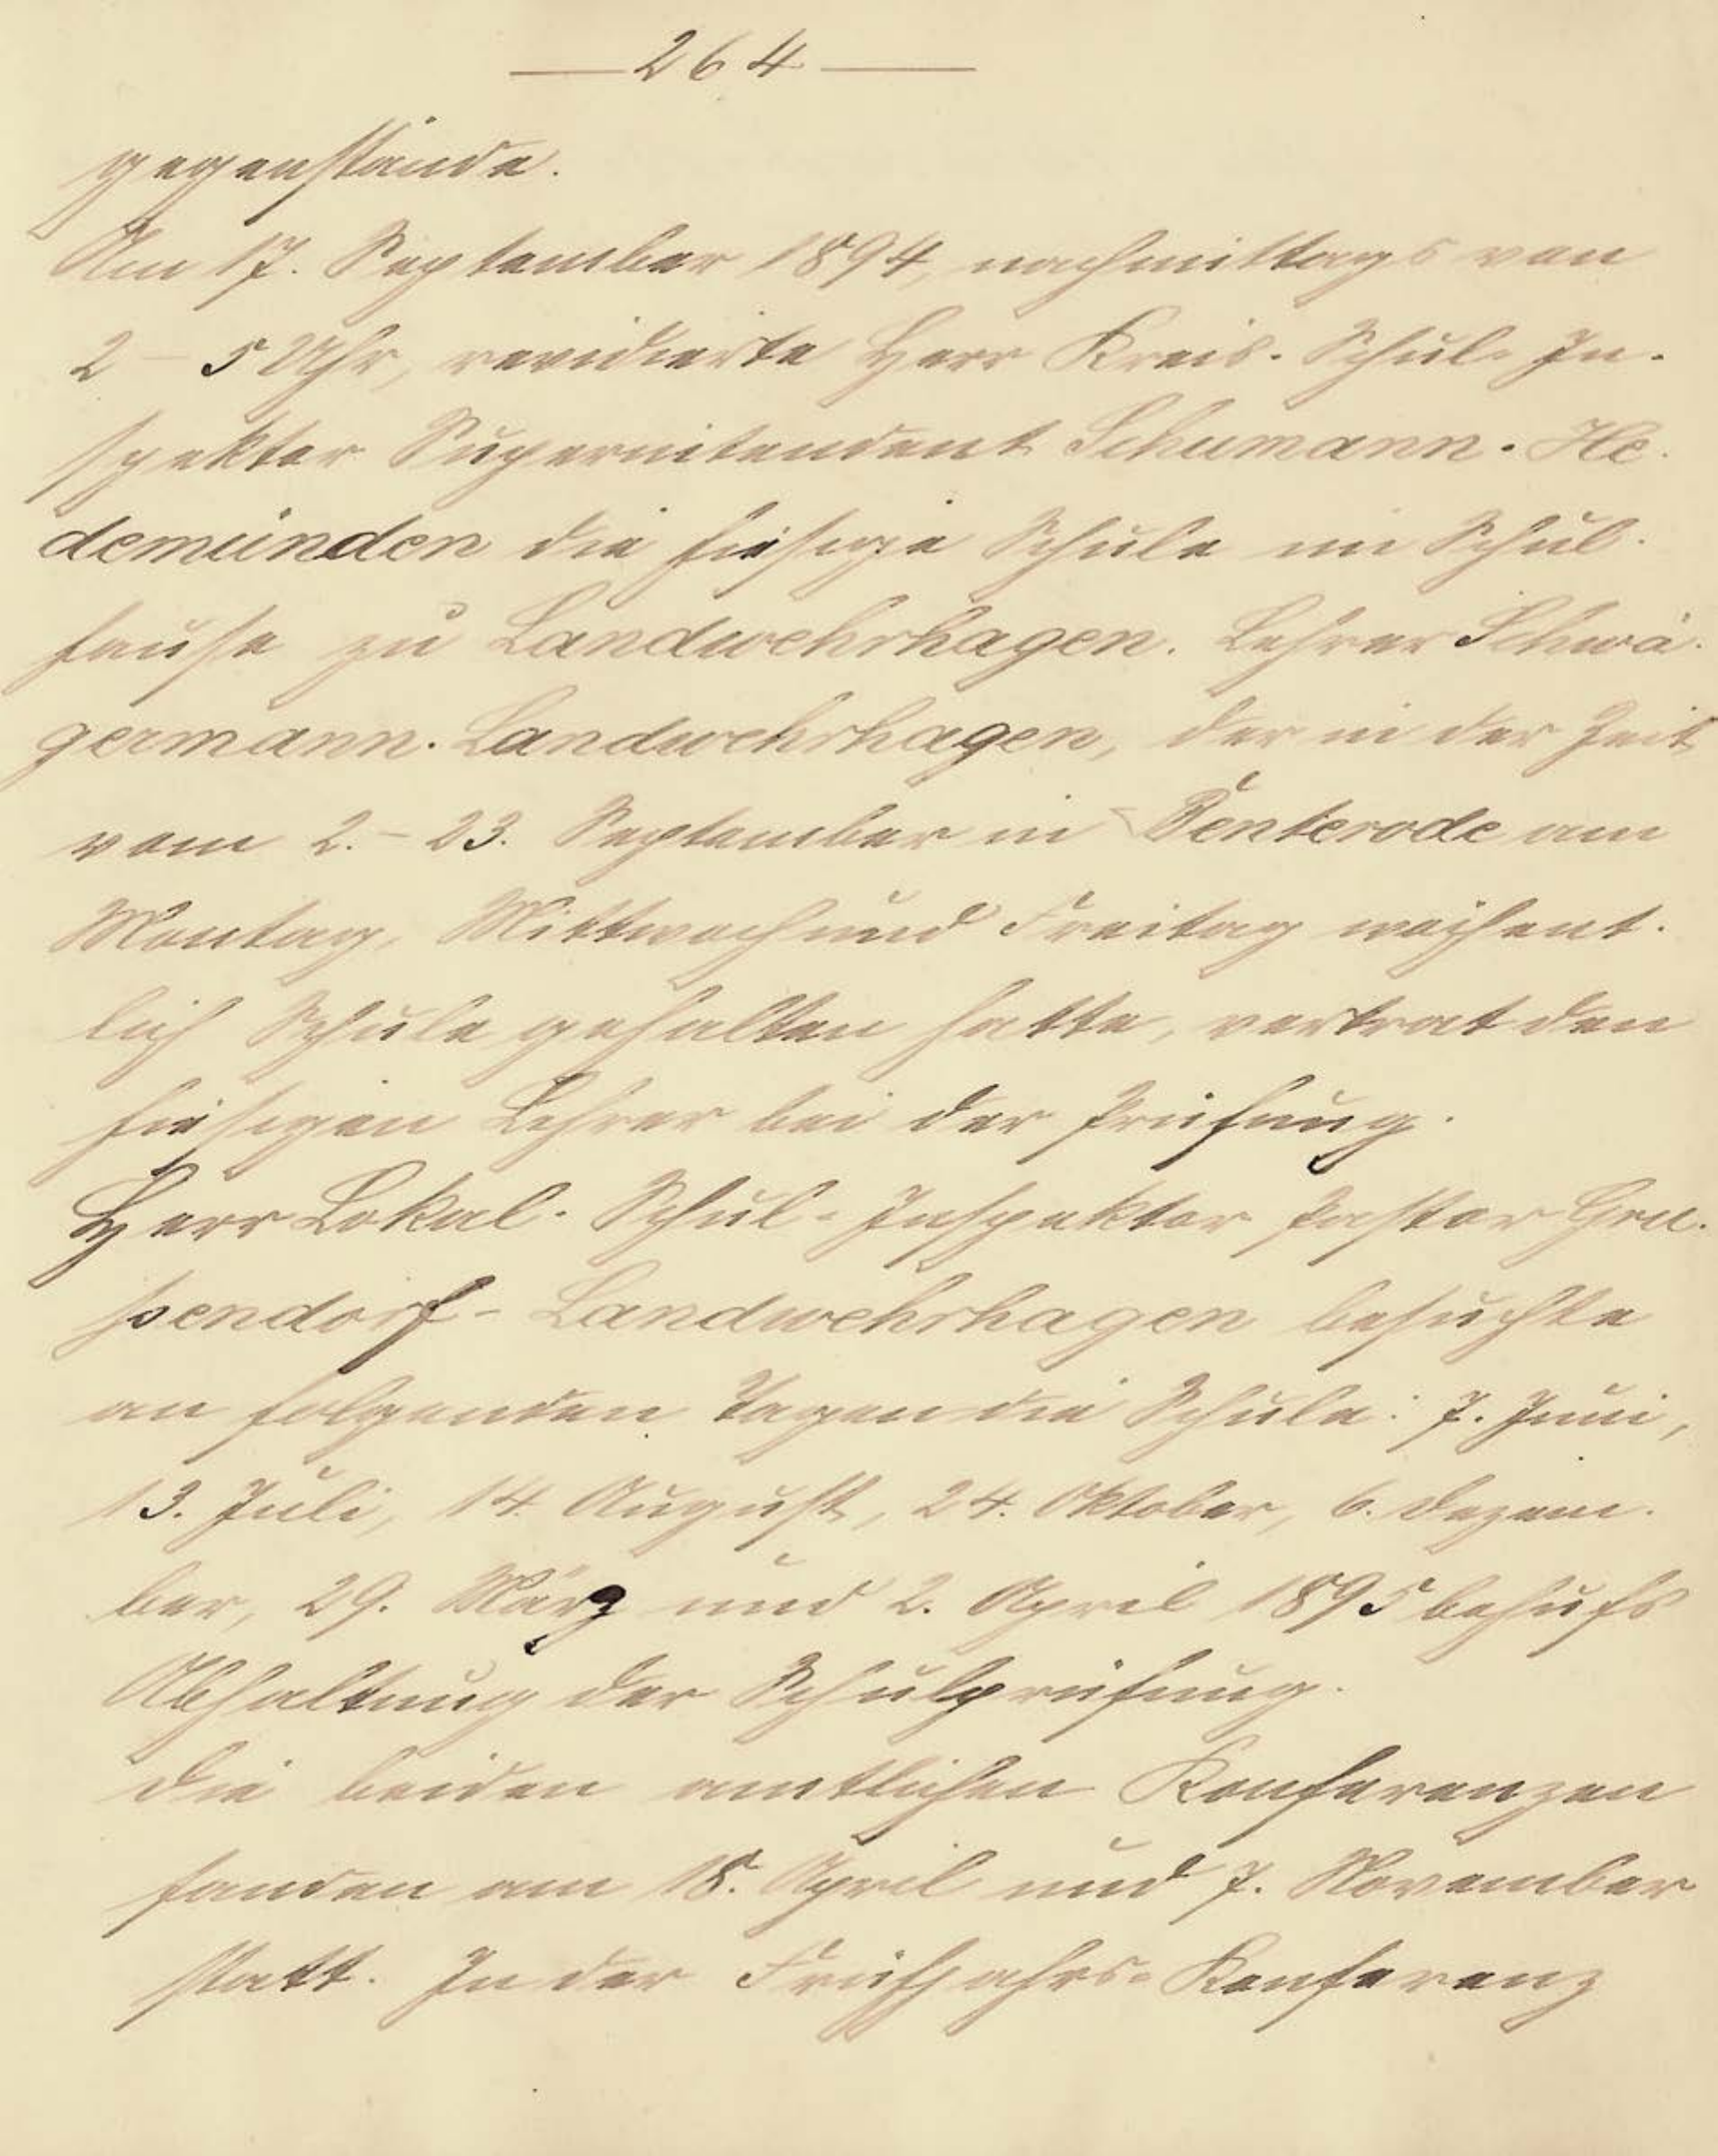 — 264 —
gegenstände.
Am 17. September 1894, nachmittags von
2 – 5 Uhr, revidierte Herr Kreis-Schul-In-
spektor Superintendent Schumann-He-
demünden die hiesige Schule im Schul-
hause zu Landwehrhagen. Lehrer Schwä-
germann-Landwehrhagen, der in der Zeit
vom 2.– 23. September in Benterode am
Montag, Mittwoch und Freitag wöchent-
lich Schule gehalten hatte, vertrat den
hiesigen Lehrer bei der Prüfung.
Herr Lokal-Schul-Inspektor Pastor Gru-
pendorf-Landwehrhagen besuchte
an folgenden Tagen die Schule: 7. Juni,
13. Juli, 14. August, 24. Oktober, 6. Dezem-
ber, 29. März und 2. April 1895 behufs
Abhaltung der Schulprüfung.
Die beiden amtlichen Konferenzen
fanden am 18. April und 7. November
statt. In der Frühjahrs-Konferenz